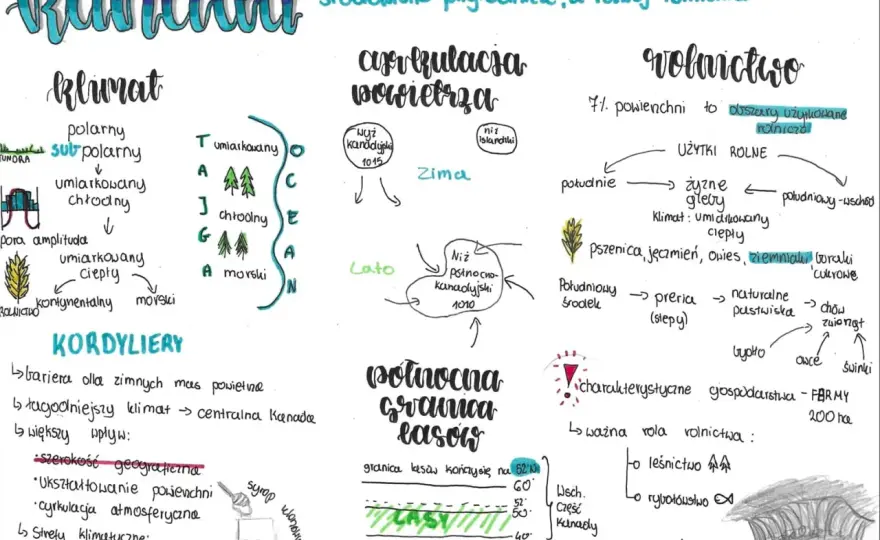 klimat
polarny
subpolarny
TUNDRA
umiarkowany
chłodny
pora amplituda
umiarkowany
ciepły
kontynentalny
morski
ROLNICTWO
TAJGA
umiarkowany
chłodny
morski
OCEAN
KORDYLIERY
↳ bariera dla zimnych mas powietrza
↳ łagodniejszy klimat → centralna Kanada
↳ większy wpływ:
· szerokość geograficzna
· Ukształtowanie powierzchni
· cyrkulacja atmosferyczna
↳ Strefy klimatyczne:
syrop
klonowy
cyrkulacja
powietrza
wyż
kanadyjski
1015
niż
islandzki
Zima
Lato
Niż
północno-
kanadyjski
1010
północna
granica
lasów
granica lasów kończy się na 52°N
60°
52°
50°
LASY
40°
Wsch.
Część
Kanady
rolnictwo
7% powierzchni to obszary użytkowane
rolniczo
UŻYTKI ROLNE
południe → żyzne
gleby
← południowy-wschód
klimat: umiarkowany
ciepły
pszenica, jęczmień, owies, ziemniaki, buraki
cukrowe
Południowy
środek
→ preria
(stepy)
→ naturalne
pastwiska
→ chów
zwierząt
bydło
owce
świnki
! charakterystyczne gospodarstwa - FARMY
200 ha
↳ ważna rola rolnictwa:
leśnictwo
rybołówstwo